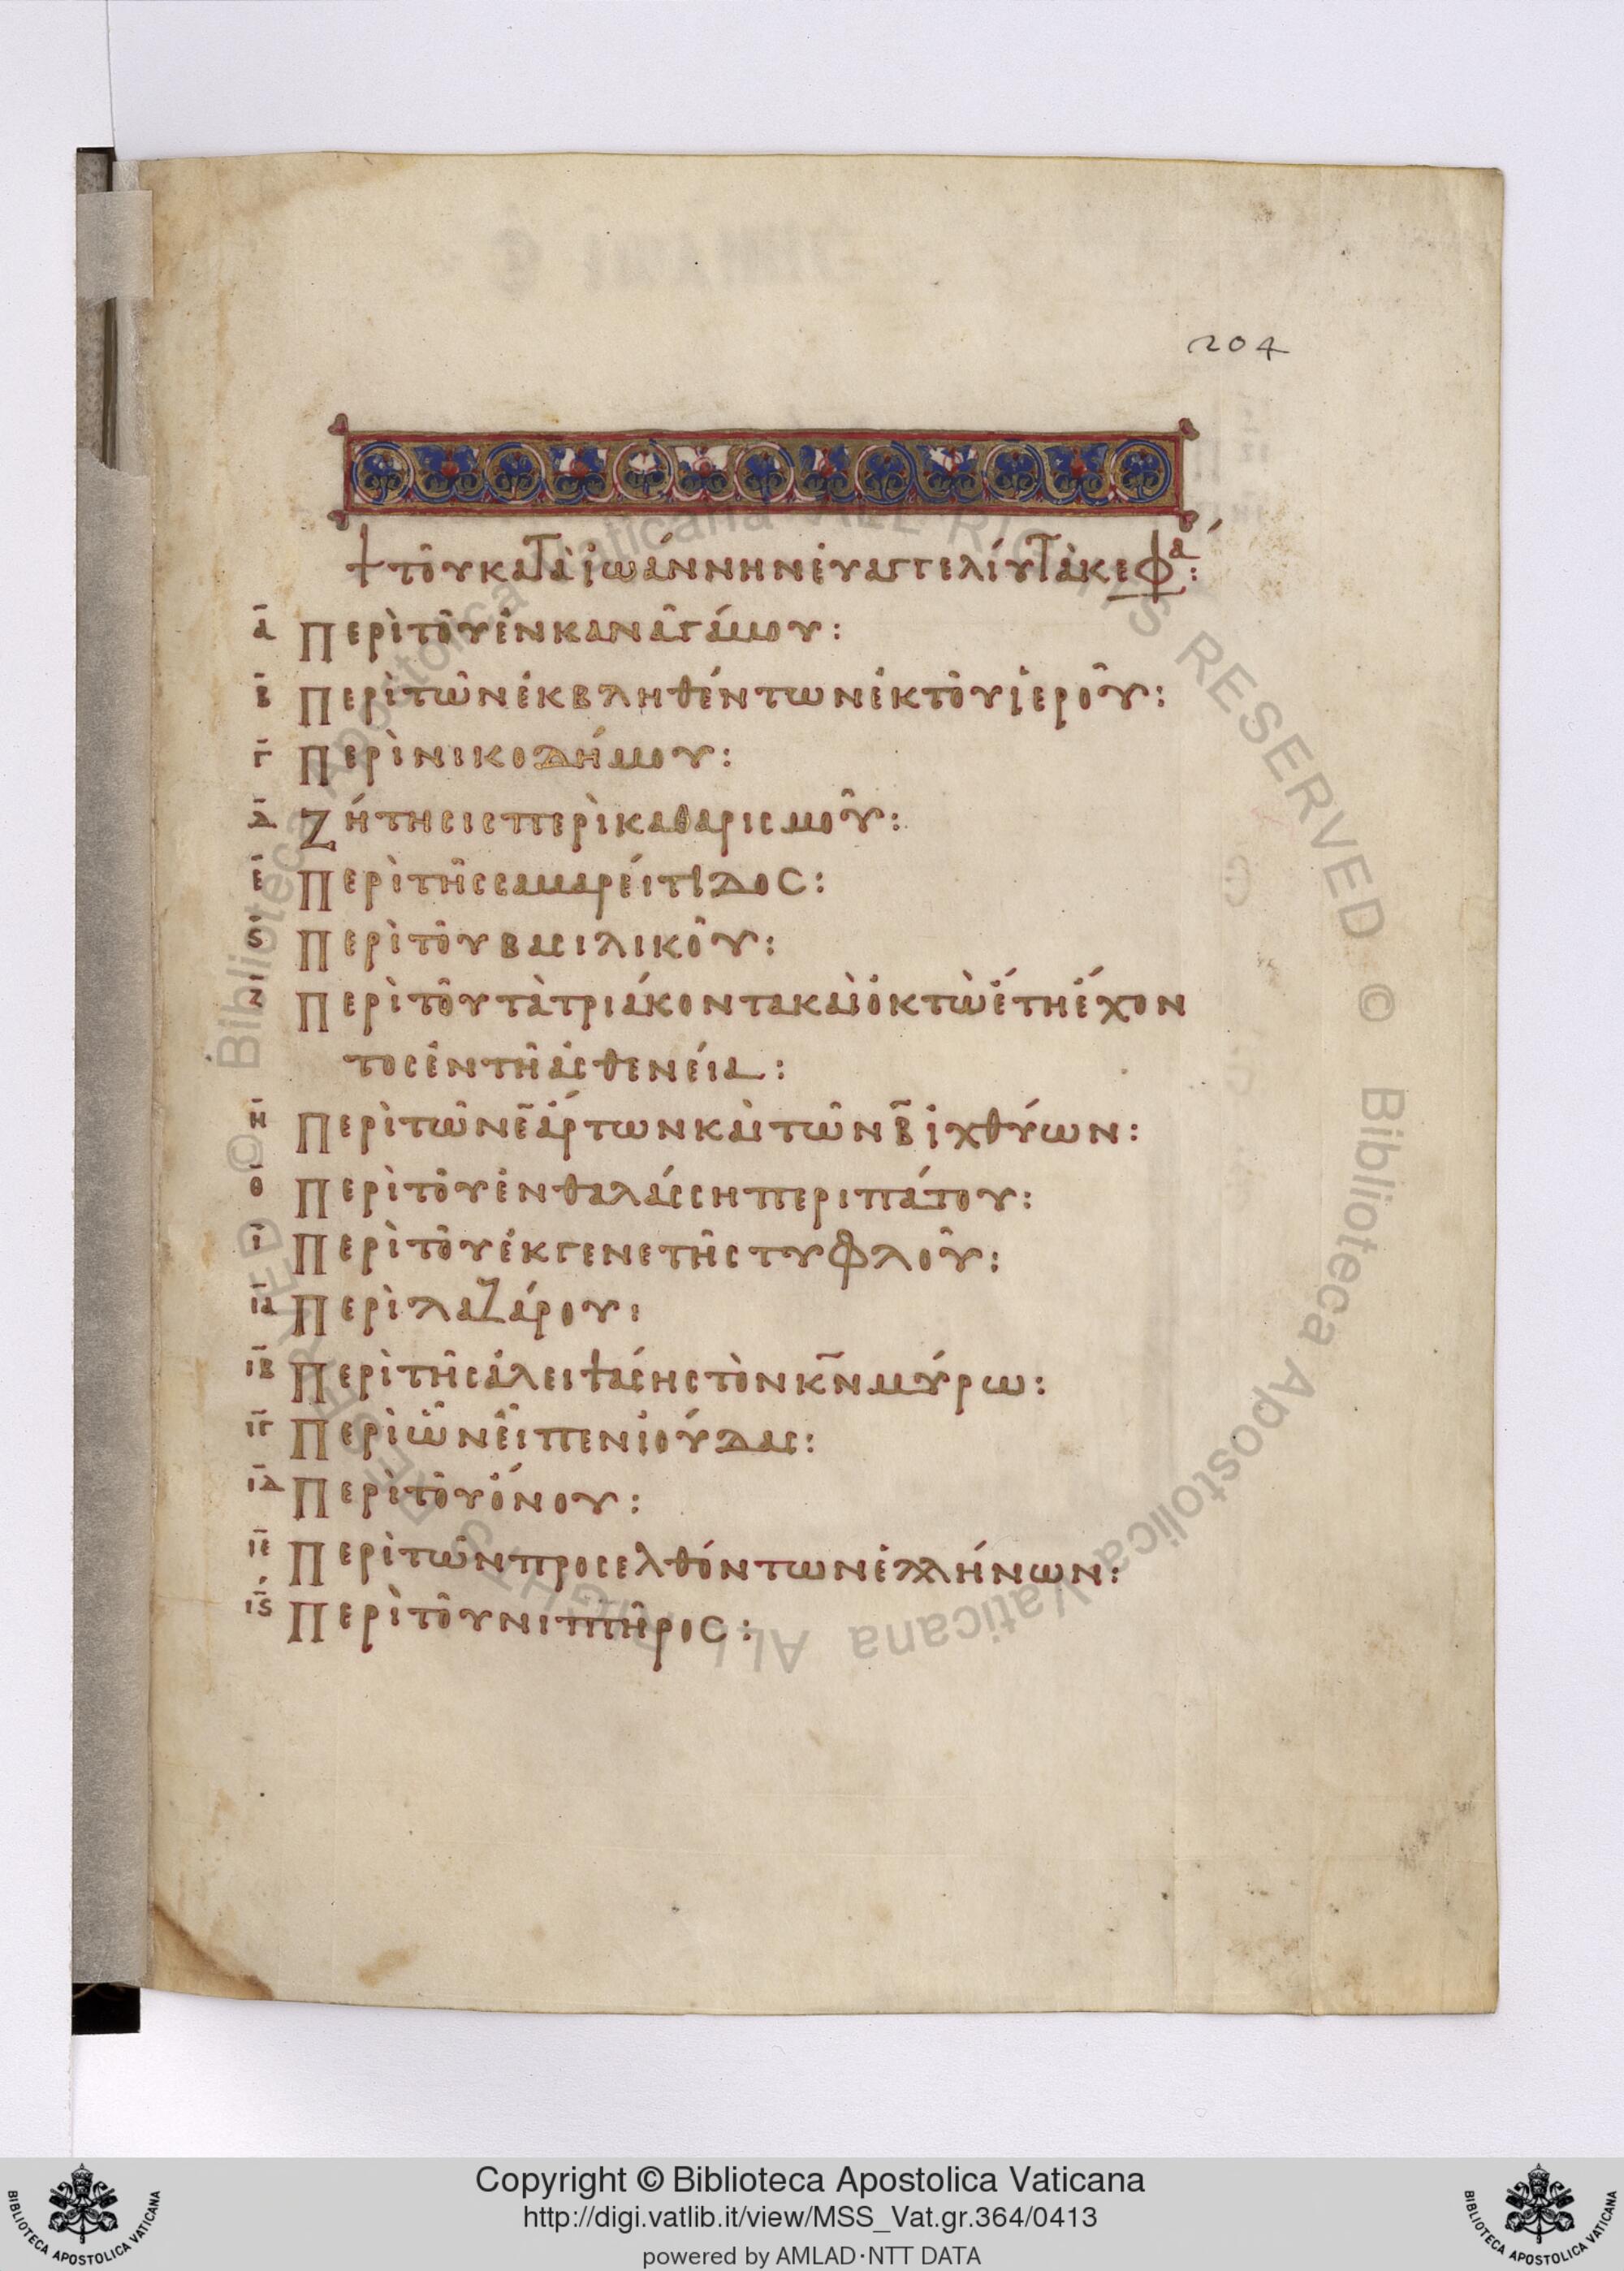 204
+ τοῦ κατὰ ἰωάννην ἐυαγγελίου τὰ κεφα:
α Περὶ τοῦ ἐν κανᾶ γάμου:
β Περὶ τῶν ἐκβληθέντων ἐκ τοῦ ἱεροῦ:
γ Περὶ νικοδήμου:
δ Ζήτησις περὶ καθαρισμοῦ:
ε Περὶ τῆς σαμαρείτιδος:
ς Περὶ τοῦ βασιλικοῦ:
ζ Περὶ τοῦ τὰ τριάκοντα καὶ ὀκτὼ ἔτη ἔχον
τος ἐν τῆ ἀσθενεία:
η Περὶ τῶν ε̄ ἄρτων καὶ τῶν β̄ ἰχθύων:
θ Περὶ τοῦ ἐν θαλάσση περιπάτου:
ι Περὶ τοῦ ἐκ γενετῆς τυφλοῦ:
ια Περὶ λαζάρου:
ιβ Περὶ τῆς ἀλειψάσης τὸν κ̄ν μύρω:
ιγ Περὶ ὧν εἶπεν ἰούδας:
ιδ Περὶ τοῦ ὄνου:
ιε Περὶ τῶν προσελθόντων ἑλλήνων:
ις Περὶ τοῦ νιπτῆρος:
© Biblioteca Apostolica Vaticana ALL RIGHTS RESERVED © Biblioteca Apostolica Vaticana ALL RIGHTS RESERVED
Copyright © Biblioteca Apostolica Vaticana
http://digi.vatlib.it/view/MSS_Vat.gr.364/0413
powered by AMLAD·NTT DATA
BIBLIOTECA APOSTOLICA VATICANA
BIBLIOTECA APOSTOLICA VATICANA